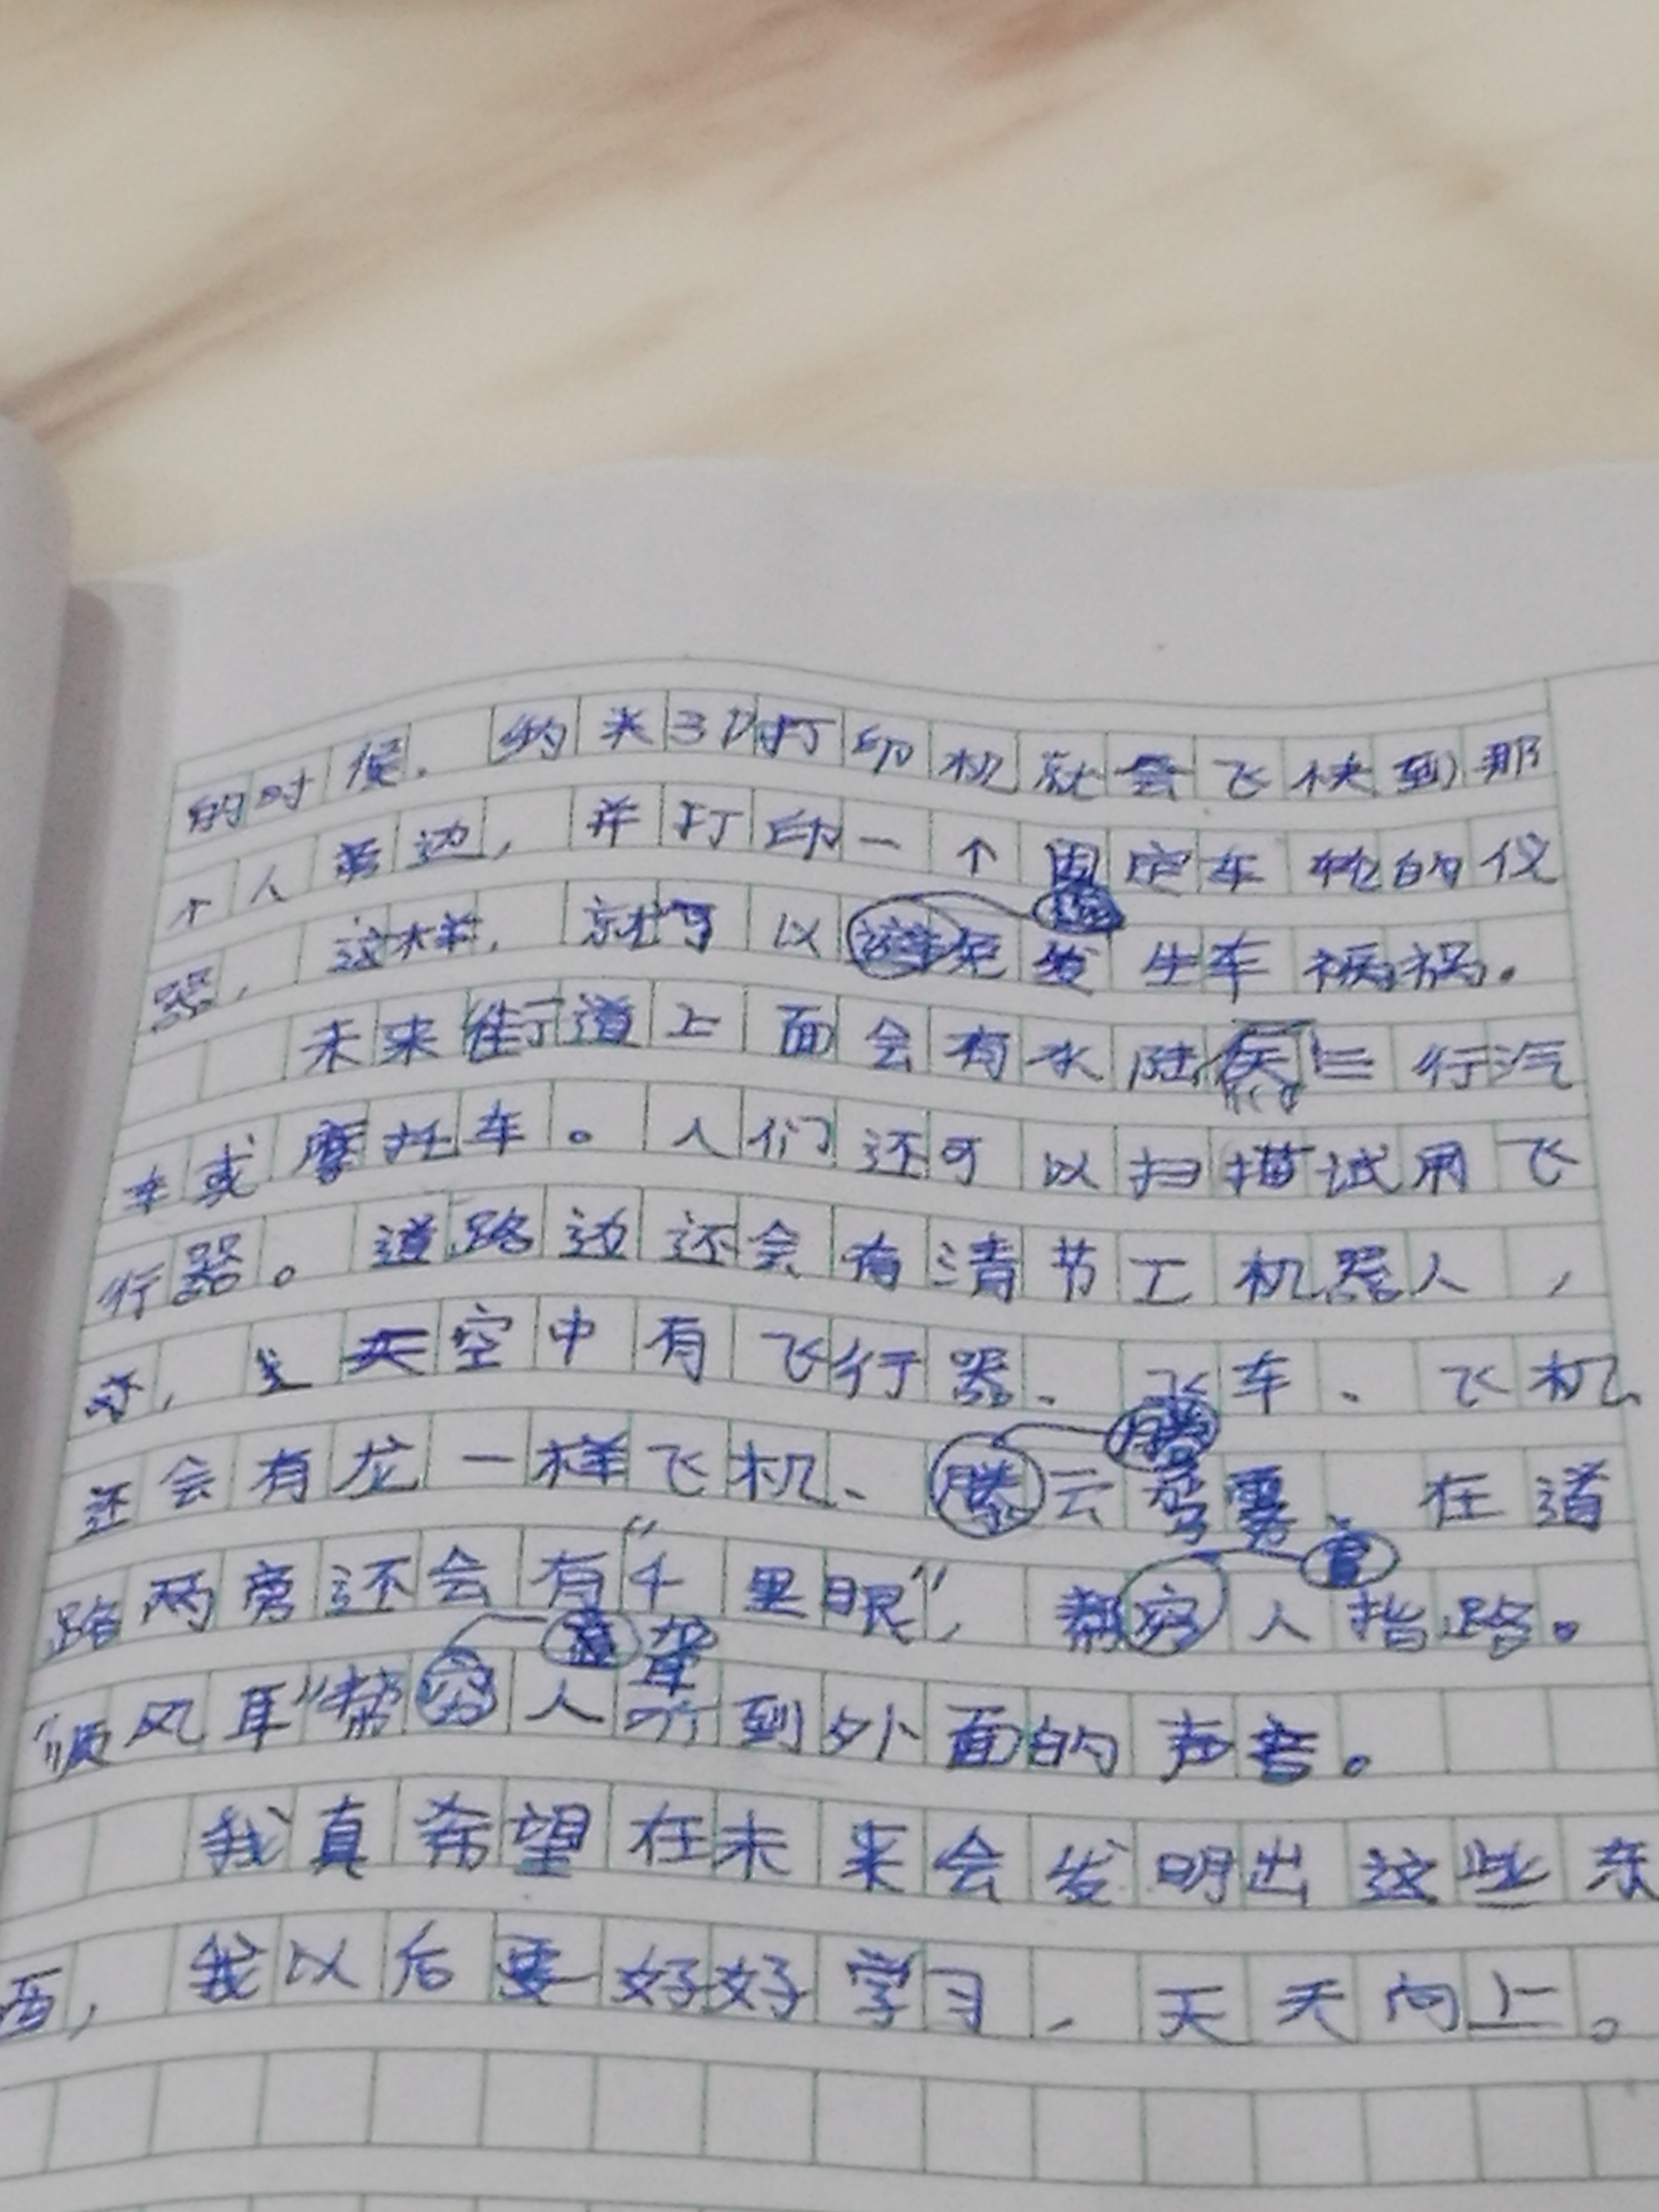 的时候，纳米3D打印机就会飞快到那
个人旁边，并打印一个固定车轮的仪
器，这样，就可以避免发生车祸。
未来街道上面会有水陆空三行汽
车或摩托车。人们还可以扫描试用飞
行器。道路边还会有清节工机器人，
天空中有飞行器、飞车、飞机
还会有龙一样飞机、腾云驾雾、在道
路两旁还会有“千里眼”，帮盲人指路。
“顺风耳”帮聋人听到外面的声音。
我真希望在未来会发明出这些东
西，我以后要好好学习，天天向上。